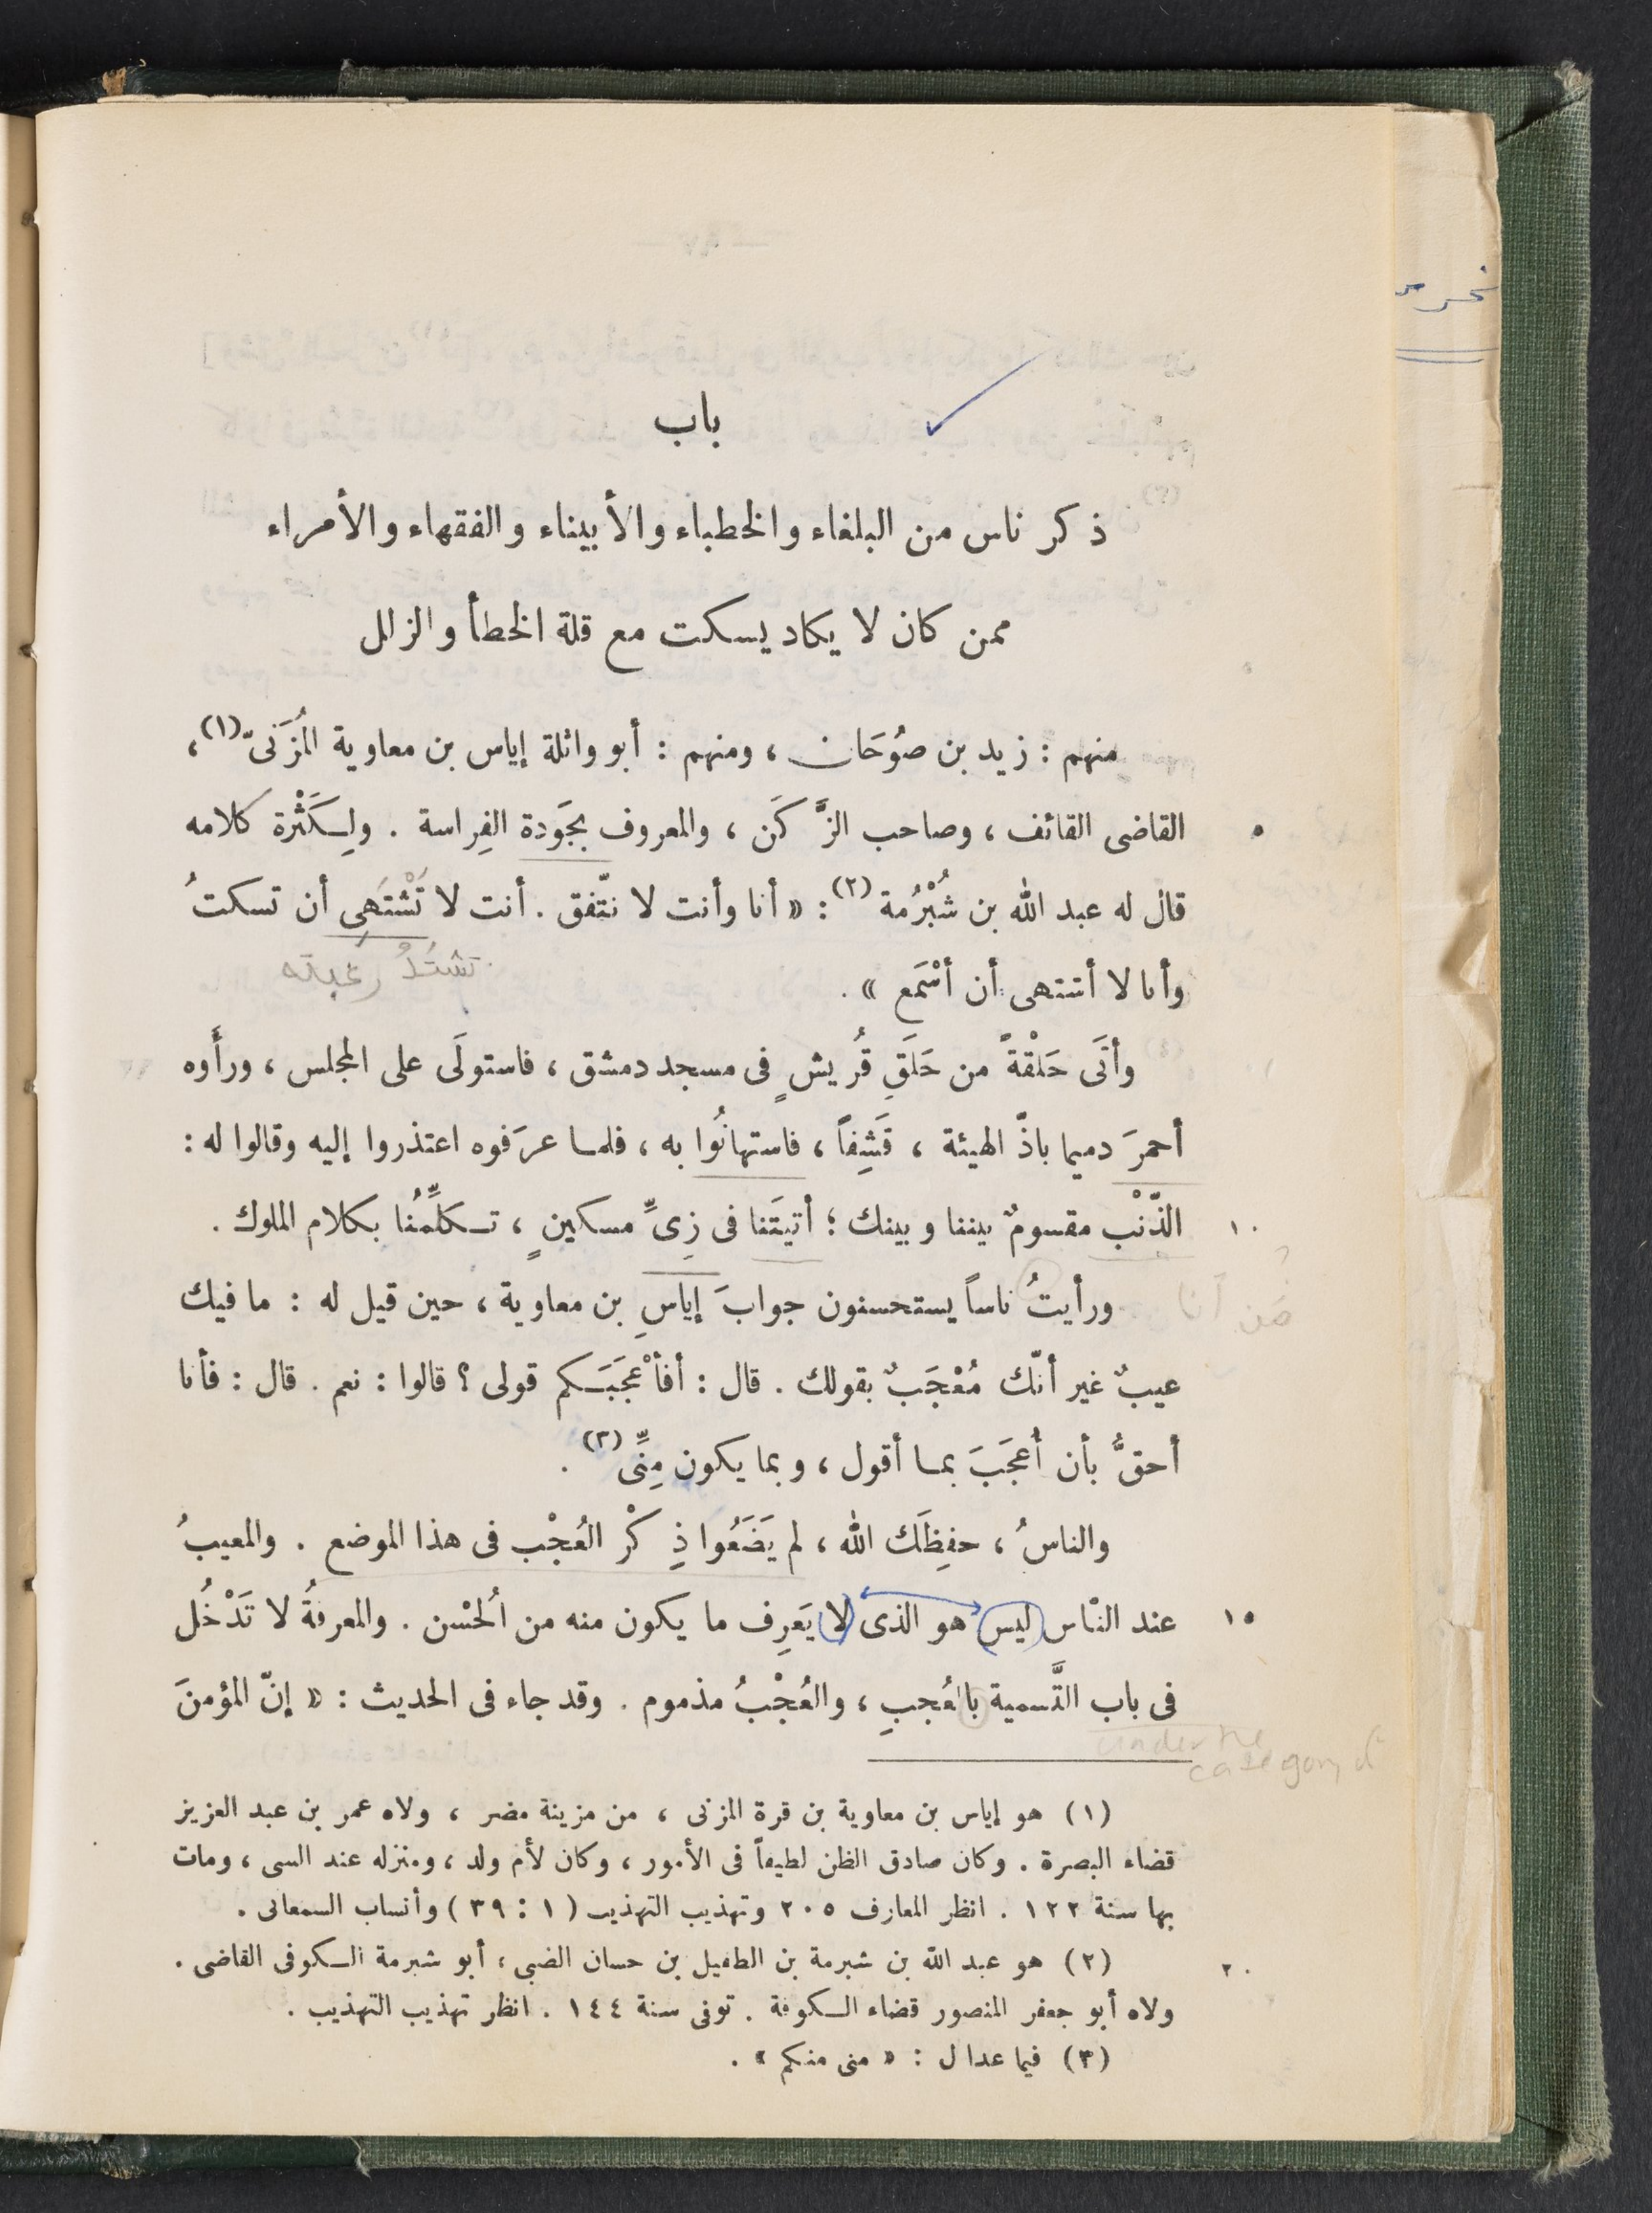 باب
ذكر ناس من البلغاء والخطباء والأبيناء والفقهاء والأمراء
ممن كان لا يكاد يسكت مع قلة الخطأ والزلل
منهم : زيد بن صُوحَان ، ومنهم : أبو واثلة إياس بن معاوية المُزَنىّ (١) ،
القاضى القائف ، وصاحب الزَّكَن ، والمعروف بجَودة الفِراسة . ولِكَثْرة كلامه
٥
قال له عبد الله بن شُبْرُمة (٢) : « أنا وأنت لا نتّفق . أنت لا تَشْتَهى أن تسكتُ
تشتدُ رغبته
وأنا لا أشتهى أن أسْمَع » .
وأتَى حَلْقةً من حَلَقِ قُريشٍ فى مسجد دمشق ، فاستولَى على المجلس ، ورأَوه
أحمرَ دميما باذَّ الهيئة ، قَشِفاً ، فاستهانُوا به ، فلما عرَفوه اعتذروا إليه وقالوا له :
الذّنْب مقسومٌ بيننا وبينك ؛ أتيتَنا فى زِىِّ مسكينٍ ، تكلِّمُنا بكلام الملوك .
١٠
ورأيتُ ناساً يستحسنون جوابَ إياسِ بن معاوية ، حين قيل له : ما فيك
عيبٌ غير أنّك مُعْجَبٌ بقولك . قال : أفأعْجَبَكم قولى ؟ قالوا : نعم . قال : فأنا
أحقُّ بأن أُعجَبَ بما أقول ، وبما يكون مِنِّى (٣) .
والناسُ ، حفِظَك الله ، لم يَضَعُوا ذِكْر العُجْب فى هذا الموضع . والمعيبُ
عند النّاس ليس هو الذى لا يَعرِف ما يكون منه من الُحْسن . والمعرفةُ لا تَدْخُل
١٥
فى باب التَّسمية بالعُجبِ ، والعُجْبُ مذموم . وقد جاء فى الحديث : « إنّ المؤمنَ
under the
category of
(١) هو إياس بن معاوية بن قرة المزنى ، من مزينة مضر ، ولاه عمر بن عبد العزيز
قضاء البصرة . وكان صادق الظن لطيفاً فى الأمور ، وكان لأم ولد ، ومنزله عند السى ، ومات
بها سنة ١٢٢ . انظر المعارف ٢٠٥ وتهذيب التهذيب ( ١ : ٣٩ ) وأنساب السمعانى .
(٢) هو عبد الله بن شبرمة بن الطفيل بن حسان الضبى ، أبو شبرمة الكوفى القاضى .
٢٠
ولاه أبو جعفر المنصور قضاء الكوفة . توفى سنة ١٤٤ . انظر تهذيب التهذيب .
(٣) فيما عدا ل : « منى منكم » .